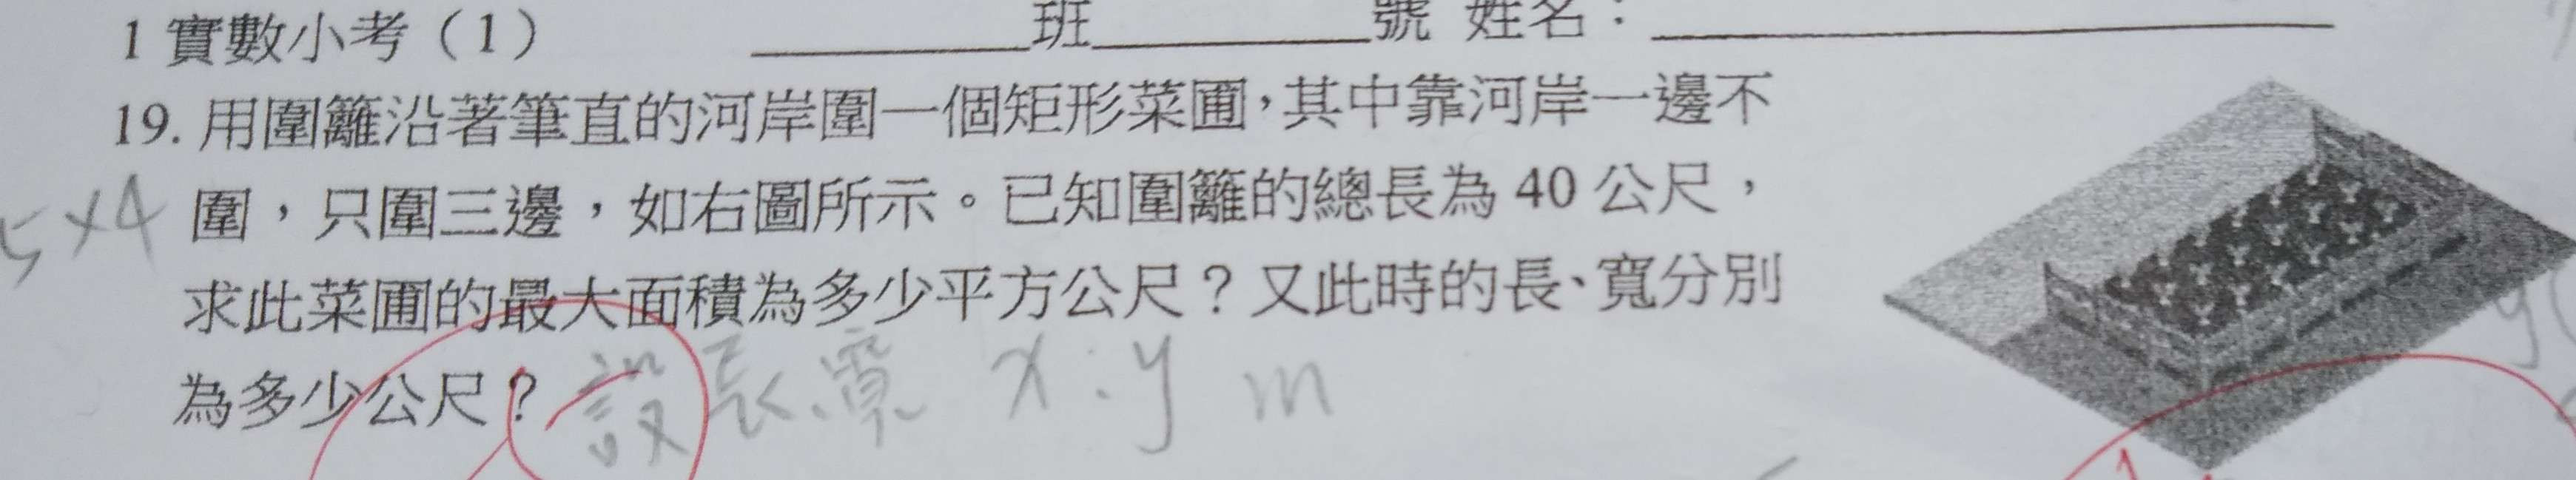 1 實數小考（1） ____班____號 姓名：____
19. 用圍籬沿著筆直的河岸圍一個矩形菜圃，其中靠河岸一邊不
圍，只圍三邊，如右圖所示。已知圍籬的總長為 40 公尺，
5×4
求此菜圃的最大面積為多少平方公尺？又此時的長、寬分別
為多少公尺？
設長、寬 x、y m